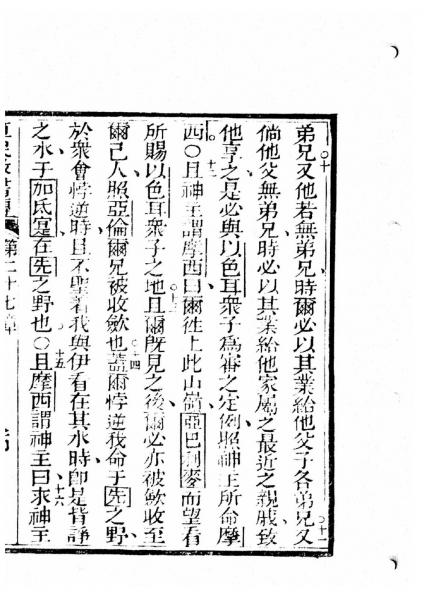 弟兄又他若無弟兄時爾必以其業給他父子各弟兄又
十
十一
倘他父無弟兄時必以其業給他家屬之最近之親戚致
他享之是必與以色耳衆子為審之定例照神主所命摩
西○且神主謂摩西曰爾徃上此山嶺亞巴利麥而望看
十二
所賜以色耳衆子之地且爾既見之後爾必亦被斂收至
十三
爾己人照亞倫爾兄被收斂也蓋爾悖逆我命于先之野
十四
於衆會悖逆時且不聖着我與伊看在其水時即是皆諍
之水于加氐寔在先之野也○且摩西謂神主曰求神主
十五
十六
第二十七章